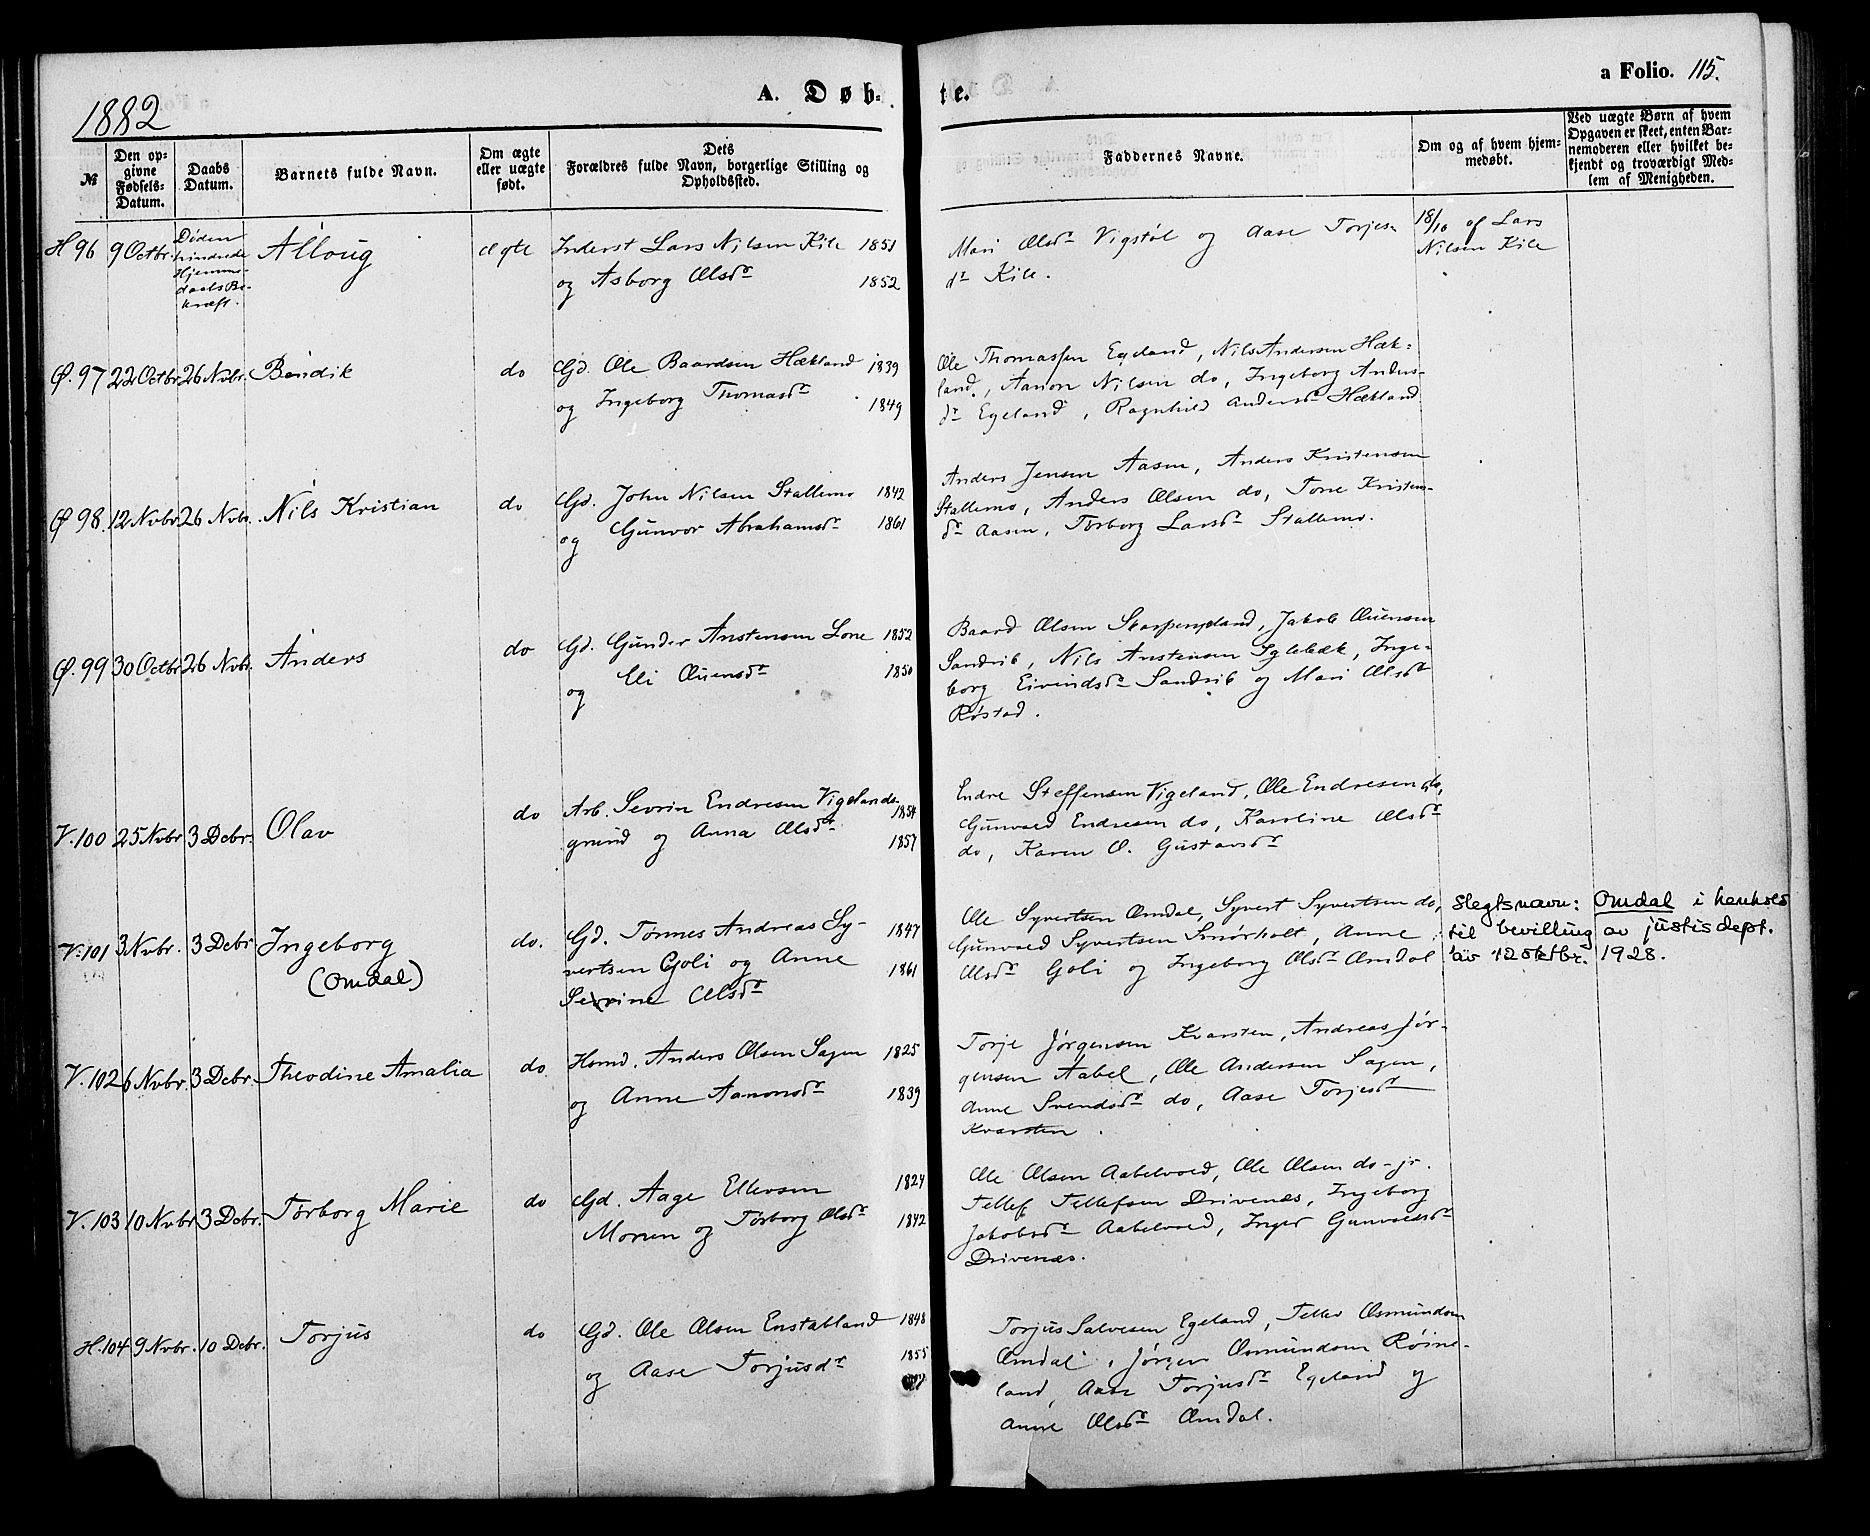 1882
A. Døb-
te.
a Folio. 115.
№
Den op-
givne
Fødsels-
Datum.
Daabs
Datum.
Barnets fulde Navn.
Om ægte
eller uægte
født.
Dets
Forældres fulde Navn, borgerlige Stilling og
Opholdssted.
Faddernes Navne.
Om og af hvem hjem-
medøbt.
Ved uægte Børn af hvem
Opgaven er skeet, enten Bar-
nemoderen eller hvilket be-
kjendt og troværdigt Med-
lem af Menigheden.
H 96 9 Octbr.
Døden
hindrede
Hjemme-
daabs Be-
kræft.
Alloug
ægte
Inderst Lars Nilsen Kile 1851
og Asborg Olsdr 1852
Mari Olsdr Vigstøl og Aase Torjes-
dr Kile.
18/10 af Lars
Nilsen Kile
Ø. 97 22 Octbr. 26 Nvbr. Bendik
do
Gd. Ole Baardsen Hækland 1839
og Ingeborg Thomasdr 1849
Ole Thomassen Egeland, Nils Andersen Hæk-
land, Aanon Nilsen do, Ingeborg Anders-
dr Egeland, Ragnhild Andersdr Hækland
Ø 98. 12 Nvbr. 26 Nvbr. Nils Kristian
do
Gd. John Nilsen Stallemo 1842
og Gunvor Abrahamsdr 1861
Anders Jensen Aasen, Anders Kristensen
Stallemo, Anders Olsen do, Tone Kristens-
dr Aasen, Tørborg Larsdr Stallemo.
Ø. 99 30 Octbr. 26 Nvbr. Anders
do
Gd. Gunder Anstensen Lone 1852
og Eli Ouensdr 1850
Baard Olsen Skarpengland, Jakob Ouensen
Sandrib, Nils Anstensen Iglebæk, Inge-
borg Eivindsdr Sandrib og Mari Olsdr
Røstad.
V. 100 25 Nvbr. 3 Debr. Olav
do
Arb. Sevrin Endresen Vigelands- 1854
grund og Anna Olsdr 1857
Endre Steffensen Vigeland, Ole Endresen do,
Gunvald Endresen do, Karoline Olsdr
do, Karen O. Gustavsdr
V. 101 3 Nvbr. 3 Debr. Ingeborg
(Omdal)
do.
Gd. Tønnes Andreas Sy- 1847
vertsen Goli og Anne 1861
Sevrine Olsdr
Ole Syvertsen Omdal, Syvert Syvertsen do,
Gunvald Syvertsen Snørholt, Anne
Olsdr Goli og Ingeborg Olsdr Omdal
Slegtsnavn: Omdal i henhold
til bevilling av justisdept.
av 12 oktbr. 1928.
V. 102 6 Nvbr. 3 Debr. Theodine Amalia
do.
Hsmd. Anders Olsen Sagen 1825
og Anne Aanonsdr 1839
Torje Jørgensen Kvarsten, Andreas Jør-
gensen Aabel, Ole Andersen Sagen,
Anne Svendsdr do, Aase Torjesdr
Kvarsten.
V. 103 10 Nvbr. 3 Debr. Tørborg Marie
do
Gd. Aage Ellevsen 1824
Monen og Tørborg Olsdr 1842
Ole Olsen Aabelvold, Ole Olsen do jr.
Tellef Tellefsen Drivenæs, Ingeborg
Jakobsdr Aabelvold, Inger Gunvaldsdr
Drivenæs.
H. 104 9 Nvbr. 10 Debr. Torjus
do
Gd. Ole Olsen Enstabland 1848
og Aase Torjusdr 1855
Torjus Salvesen Egeland, Tellev Osmundsen
Omdal, Jørgen Osmundsen Røine-
land, Aase Torjusdr Egeland og
Anne Olsdr Omdal.